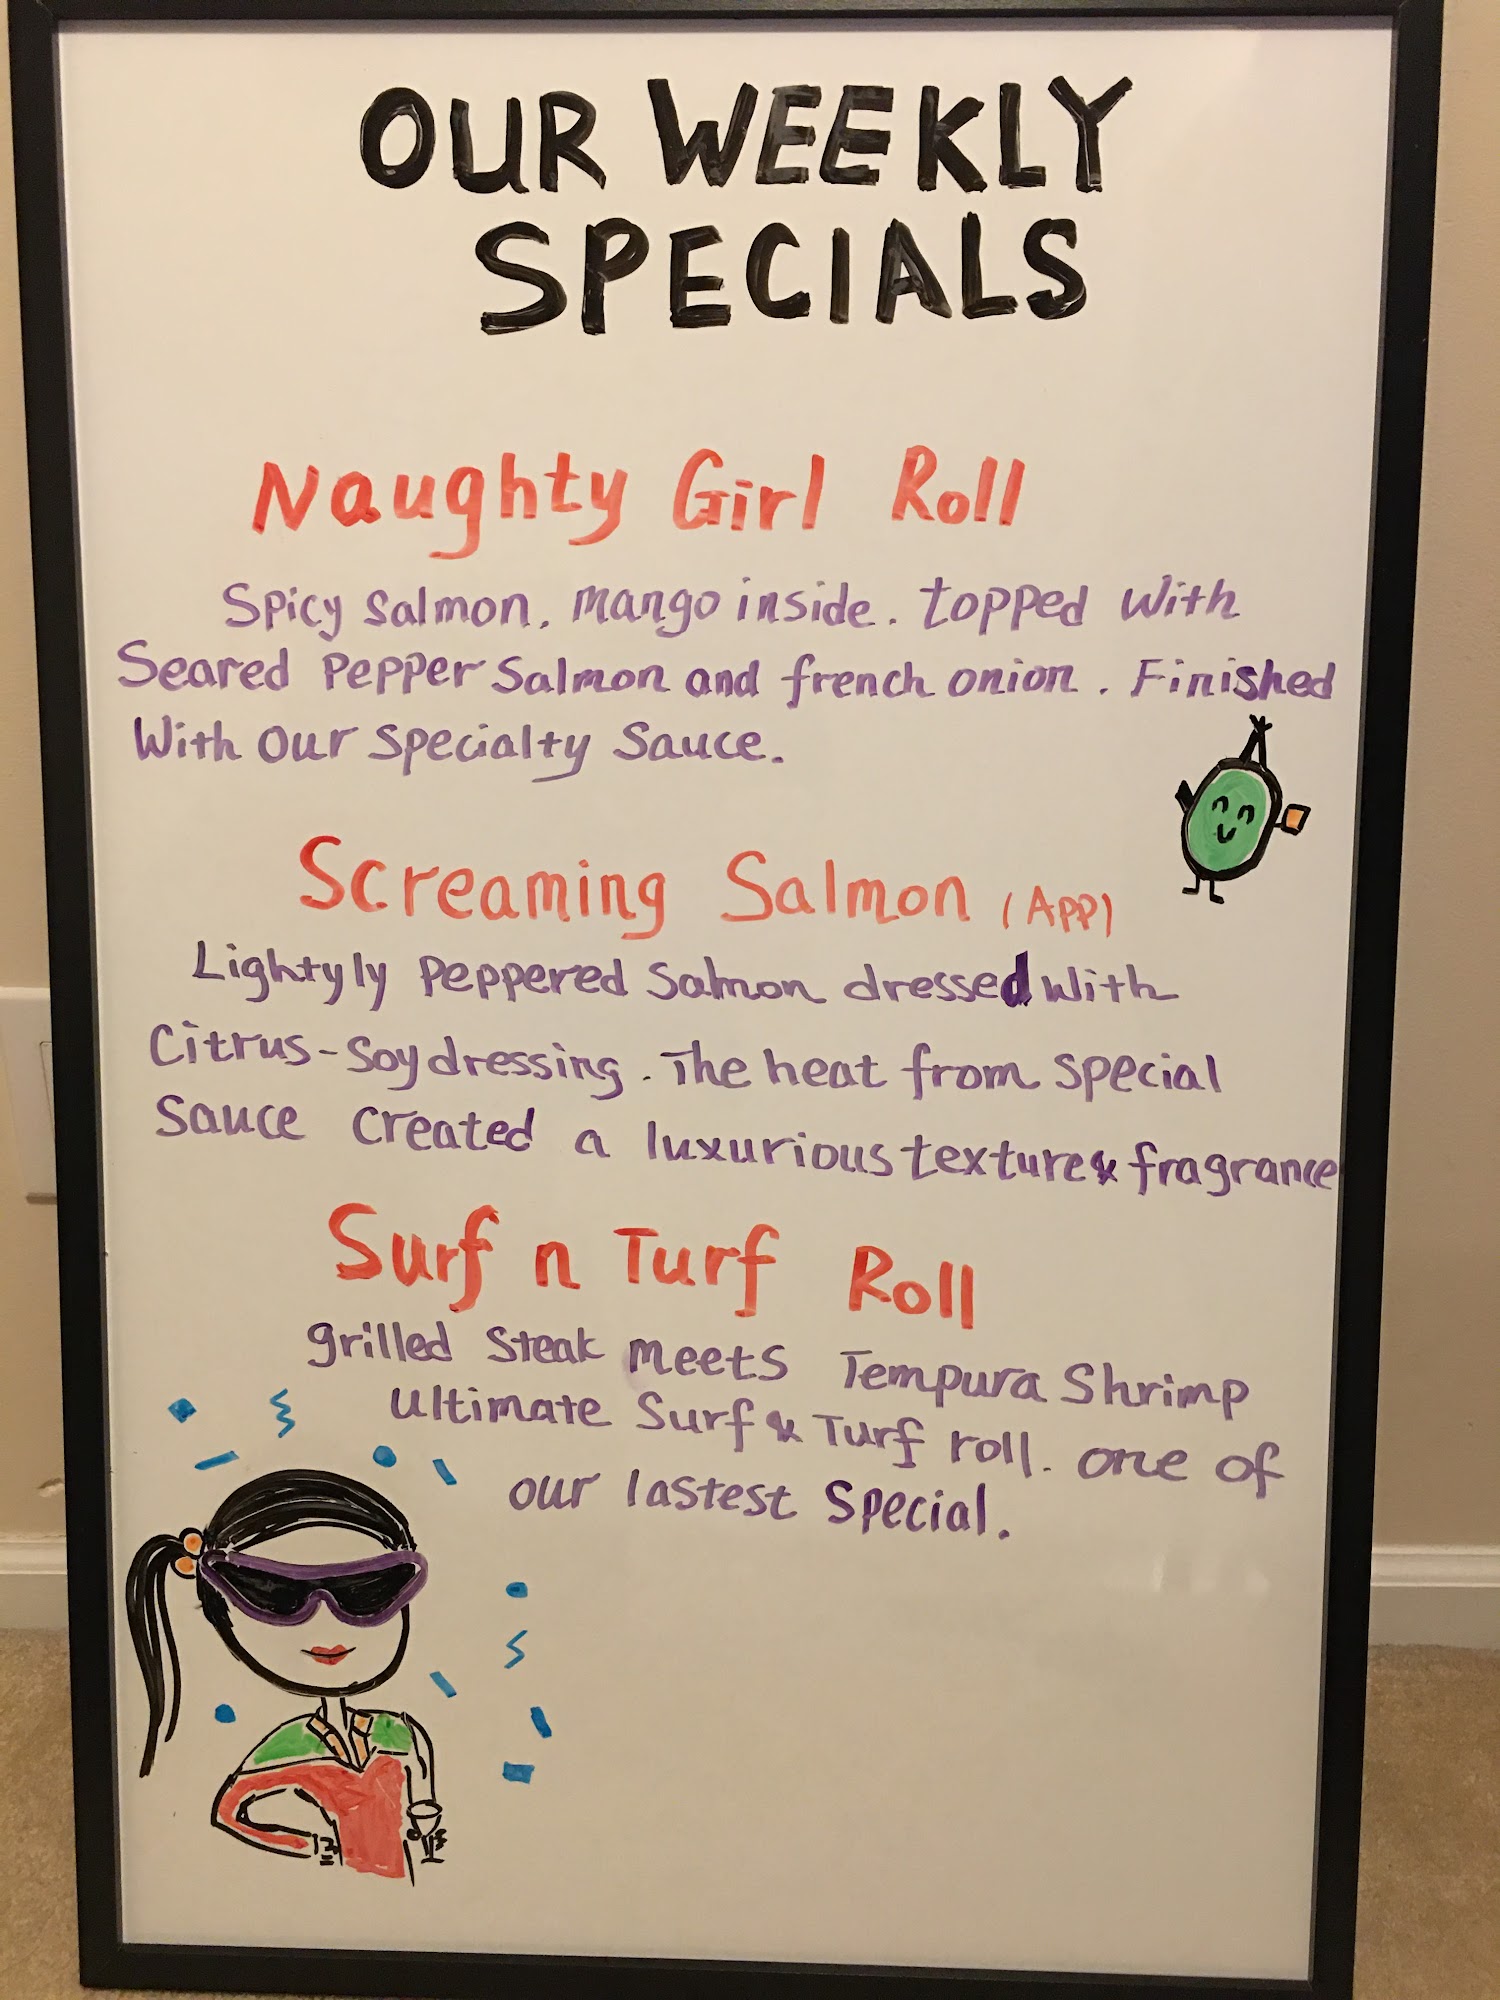 OUR WEEKLY
SPECIALS
Naughty Girl Roll
Spicy Salmon, mango inside. topped with
Seared Pepper Salmon and french onion. Finished
With our specialty sauce.
Screaming Salmon (App)
Lightyly peppered Salmon dressed with
Citrus-Soy dressing. The heat from special
Sauce created a luxurious texture & fragrance
Surf n Turf Roll
grilled steak meets Tempura Shrimp
ultimate Surf & Turf roll. one of
our lastest special.